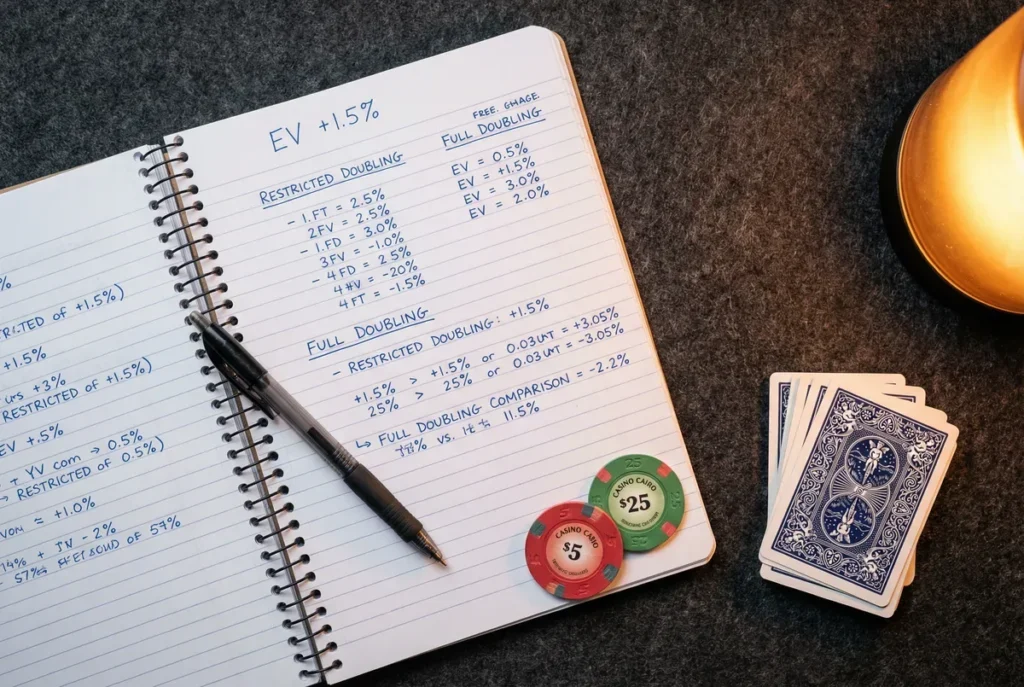 %
OF +1.5%)
+1.5%
+3%
RESTRICTED OF +1.5%)
EV +.5%
+ YV com → 0.5%
→ RESTRICTED OF 0.5%)
≈ +1.0%
14% + - 2%
57% OF 57%
EV +1.5%
RESTRICTED DOUBLING
- 1.FT = 2.5%
2FV = 2.5%
- 1.FD = 3.0%
3FV = -1.0%
- 4FD = 2.5%
= -20%
4FT = -1.5%
FREE. GHAGE.
FULL DOUBLING
EV = 0.5%
EV = +1.5%
EV = 3.0%
EV = 2.0%
FULL DOUBLING
- RESTRICTED DOUBLING: +1.5%
+1.5% > +1.5% or 0.03 = +3.05%
25% > 25% or 0.03 = -3.05%
↳ FULL DOUBLING COMPARISON = -2.2%
vs. 11.5%
25
CASINO CAIRO
$25
CASINO CAIRO
$5